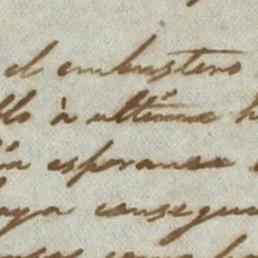 el embustero
llo à ultima h
esperanza
haya consegui